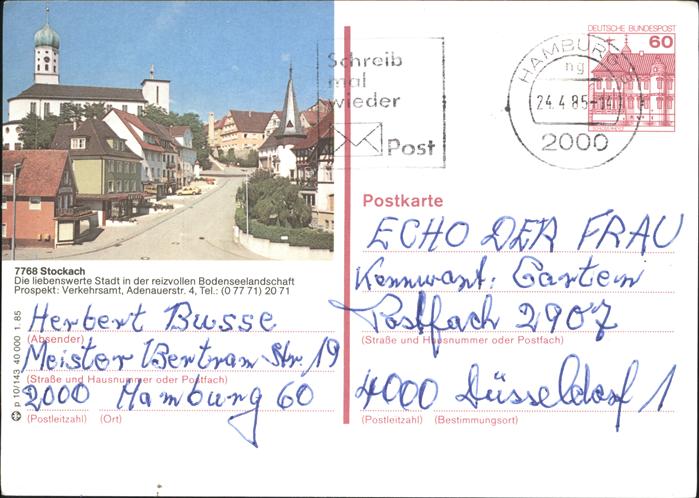 Schreib
mal
wieder
Post
HAMBURG
ng
24.4.85-14
2000
DEUTSCHE BUNDESPOST
60
Postkarte
ECHO DER FRAU
Kennwort: Garten
Postfach 2907
(Straße und Hausnummer oder Postfach)
4000 Düsseldorf 1
(Postleitzahl) (Bestimmungsort)
7768 Stockach
Die liebenswerte Stadt in der reizvollen Bodenseelandschaft
Prospekt: Verkehrsamt, Adenauerstr. 4, Tel.: (0 77 71) 20 71
Herbert Busse
(Absender)
Meister Bertram Str. 19
(Straße und Hausnummer oder Postfach)
2000 Hamburg 60
(Postleitzahl) (Ort)
p 10/143 40 000 1. 85